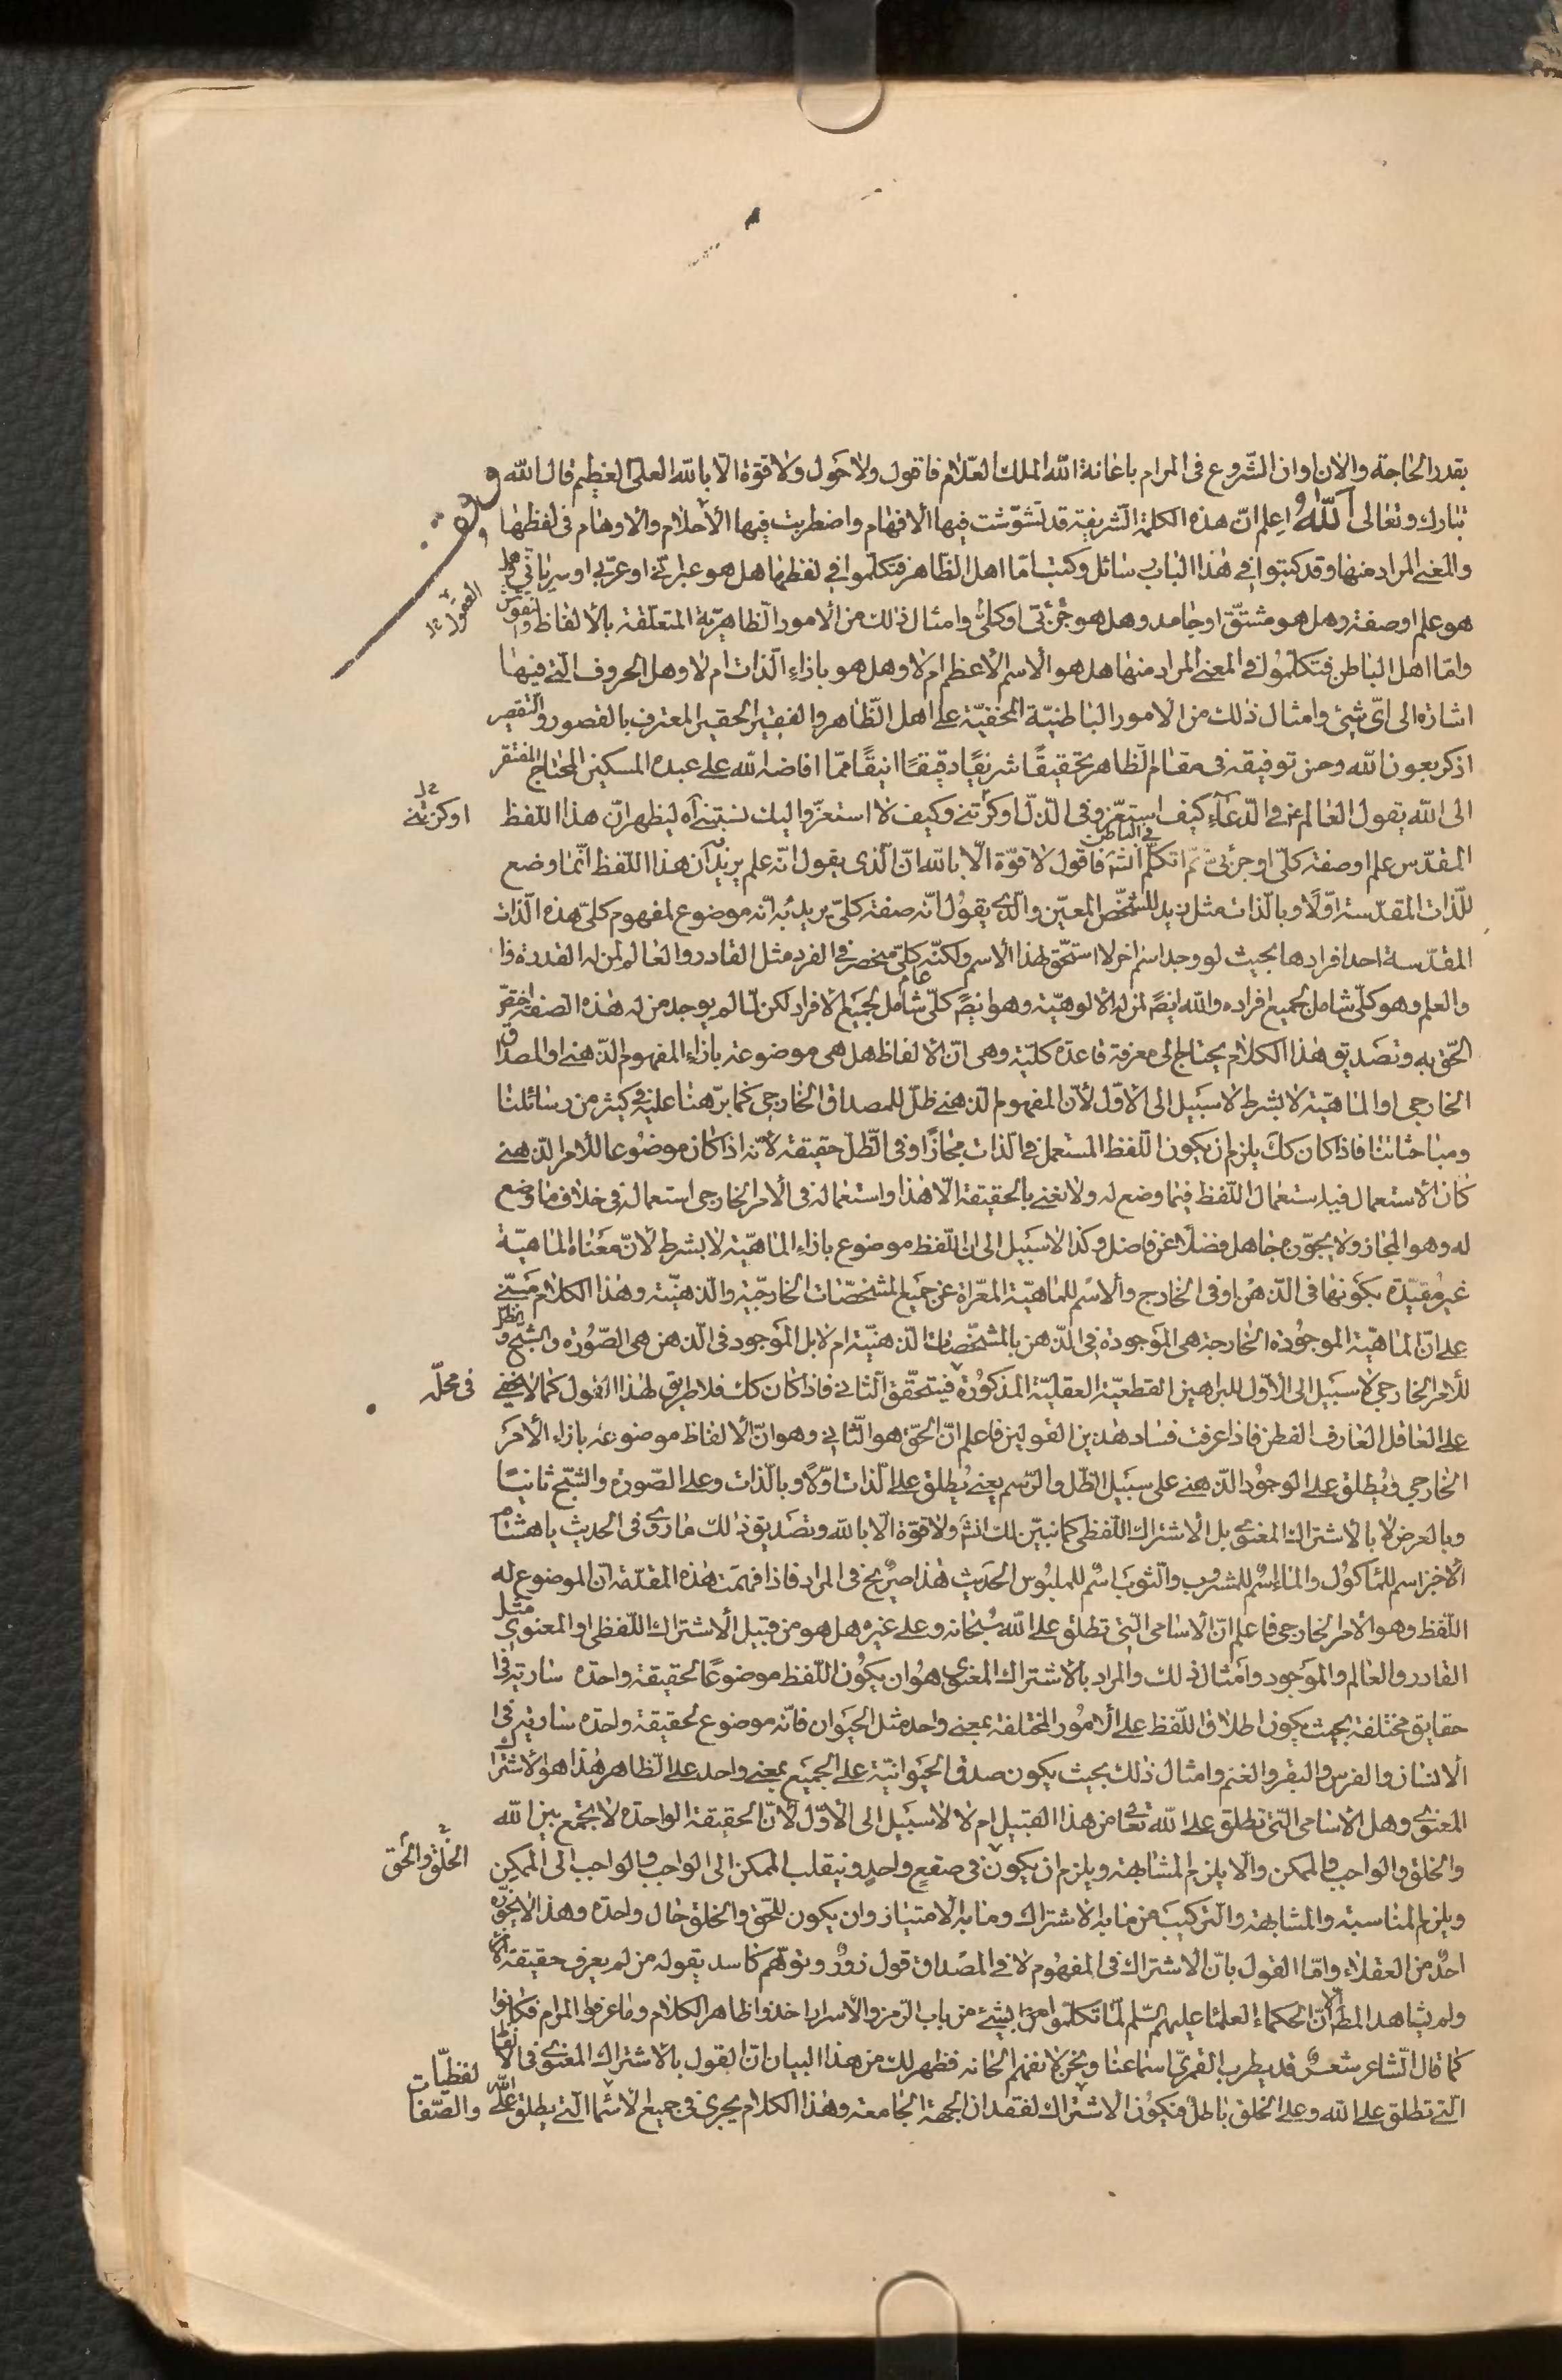 بقدر الحاجة والان اوان الشّروع فى المرام باعانة الله الملك العّلام فاقول ولا حَول ولا قوّة الّا بالله العلىّ العظيم قال الله
تبارك وتعالى اَللّهُ اعلم انّ هذه الكلمة الشريفة قد تشوّشت فيها الافهام واضطربت فيها الأحلام والاوهام فى لفظها
والمعنى المراد منها وقد كتبوا فى هذا الباب رسائل وكتب امّا اهل الظّاهر فتكلّموا فى لفظها هل هو عبرانىّ او عربى او سريانى وهل
هو علم او صفة وهل هو مشتقّ او جامد وهل هو جُزئى او كلىّ وامثال ذلك من الامور الظاهريّة المتعلّقة بالألفاظ والنقوش
العقول
وامّا اهل الباطن فتكلّموا فى المعنى المراد منها هل هو الاسم الاعظم ام لا وهل هو بازاءِ الذات ام لا وهل الحروف الّتى فيها
اشارة الى اىّ شىء وامثال ذلك من الامور الباطنيّة المخفيّة على اهل الظّاهر والفقير الحقير المعترف بالقصور والتقصير
اذكر بعون الله وحسن توفيقه فى مقام الظّاهر تحقيقًا شريفًا دقيقًا انيقًا ممّا افاضه الله على عبده المسكين المحتاج المفتقر
الى الله يقول العالم ع فى الدّعآءِ كيف استعزّ وفى الذلّ اركزتنى وكيف لا استعزّ واليك نسبتنى آه ليظهر انّ هذا اللفظ
او كرمتنى
المقدّس علم او صفة كلّى او جزئى ثمّ اتكلّم فى الباطن انشآ فاقول لا قوّة الّا بالله انّ الّذى يقول انّه علم يريد انّ هذا اللفظ انّما وضع
للّذات المقدّسة اوّلًا وبالّذات مثل زيد للشخّص المعيّن والّذى يقول انّه صفة كلّى يريد به انّه موضوع لمفهوم كلىّ هذه الّذات
المقدّسة احد افرادها بحيث لو وجد اسم اخر لاستحّق لهذا الاسم ولكنّه كلّى منحصر فى الفرد مثل القادر والعالم لمن له القدرة
والعلم وهو كلّى عام شامل لجميع افراده والله ايضً لمن له الالوهيّة وهو ايضً كلّى شامل لجميع الافراد لكن لمّا لم يوجد من له هذه الصفة
الحّق به وتصديق هذا الكلام يحتاج الى معرفة قاعدة كليّة وهى انّ الالفاظ هل هى موضوعة بازاء المفهوم الذهنى او المصداق
الخارجى او الماهيّة لا بشرط لا سبيل الى الاوّل لأنّ المفهوم الذهنى ظلّ للمصداق الخارجى كما برّهنا عليه فى كثير من رسائلنا
ومباحثاتنا فاذا كان كك يلزم ان يكون اللّفظ المستعمل فى الّذات مجازًا وفى الّظلّ حقيقة لانّه اذا كان موضوعا للأمر الذهنى
كان الاستعمال فيه استعمال اللّفظ فيما وضع له ولا نعنى بالحقيقة الّا هذا واستعماله فى الأمر الخارجى استعماله فى خلاف ما وضع
له وهو المجاز ولا يجوّزه جاهل فضلًا عن فاضل وكذا لا سبيل الى انّ اللّفظ موضوع بازاءِ الماهيّة لا بشرط لانّ معناه الماهيّة
غير مقيّدة بكونها فى الذهن او فى الخارج والاسم للماهيّة المعّراة عن جميع المشخصّات الخارجيّة والذهنيّة وهذا الكلام مبنىّ
على انّ الماهيّة الموجودة الخارجة هى الموجودة فى الذهن بالمشخّصات الذهنيّة ام لا بل الموجود فى الذهن هى الصّورة والشّبح والظلّ
للأمر الخارجى لا سبيل الى الاوّل للبراهين القطعيّة العقليّة المذكورة فيتحقّق الثانى فاذا كان كك فلا طريق لهذا القول كما لا يخفى
فى محلّه
على العاقل العارف الفطن فاذا عرفت فساد هذين القولين فاعلم انّ الحّق هو الثّانى وهو انّ الألفاظ موضوعة بازاء الأمر
الخارجى ويُطلق على الوجود الذهنى على سبيل الظّل والرّسم يعنى يُطلق على الّذات اوّلًا وبالذات وعلى الصّورة والشّبح ثانيًا
وبالعرض لا بالاشتراك المعنوى بل الاشتراك اللّفظى كما نبيّن لك انشآ ولا قوّة الّا بالله وتصديق ذلك ما روى فى الحديث يا هشام
الخبز اسم للمأكول والماء اسم للمشروب والثوب اسم للملبوس الحديث هذا صريح فى المراد فاذا فهمت هذه المقدّمة انّ الموضوع له
اللّفظ وهو الامر الخارجى فاعلم انّ الأسامى الّتى تطلق على الله سُبحانه وعلى غيره هل هو من قبيل الاشتراك اللّفظى او المعنوى مثل
القادر والعالم والموجود وامثال ذلك والمراد بالاشتراك المعنوى هو ان يكون اللّفظ موضوعًا لحقيقة واحدة سارية فى
حقايق مختلفة بحيث يكون اطلاق اللّفظ على الامور المختلفة بمعنى واحد مثل الحيوان فانّه موضوع لحقيقة واحدة سارية فى
الانسان والفرس والبقر والغنم وامثال ذلك بحيث يكون صدق الحيوانيّة على الجميع بمعنى واحد على الظاهر هذا هو الاشتراك
المعنوى وهل الاسامى التّى تطلق على الله تعا من هذا القبيل ام لا لا سبيل الى الاوّل لأنّ الحقيقة الواحدة لا تجمع بين الله
والخلق والواجب والممكن والّا يلزم المشابهة ويلزم ان يكون فى صقعٍ واحدٍ وينقلب الممكن الى الواجب والواجب الى الممكن
الخلق والحق
ويلزم المناسبة والمشابهة والتركيب من ما به الاشتراك وما به الامتياز وان يكون للحّق والخلق حال واحدة وهذا لا يجوّزه
احدٌ من العقلاء وامّا القول بانّ الاشتراك فى المفهوم لا فى المصداق قول زورٌ وتوهّم كاسد يقوله من لم يعرف حقيقة
ولم يشاهد المطلع لانّ الحكماء العلماء عليهم السّلم لمّا تكلّموا من بشىء من باب الرّمز والأسرار اخذوا ظاهر الكلام وما عرفوا المرام فكانوا
كما قال الشاعر شعرٌ قد يطرب القمرىّ اسماعنا ونحن لا نفهم الحانه فظهر لك من هذا البيان انّ القول بالاشتراك المعنوى فى الألفاظ
التى تطلق على الله وعلى الخلق باطل فيكون الاشتراك لفقدان الجهة الجامعة وهذا الكلام يجرى فى جميع الاسماء الّتى يطلق على الله
لفظيّات
والصّفات